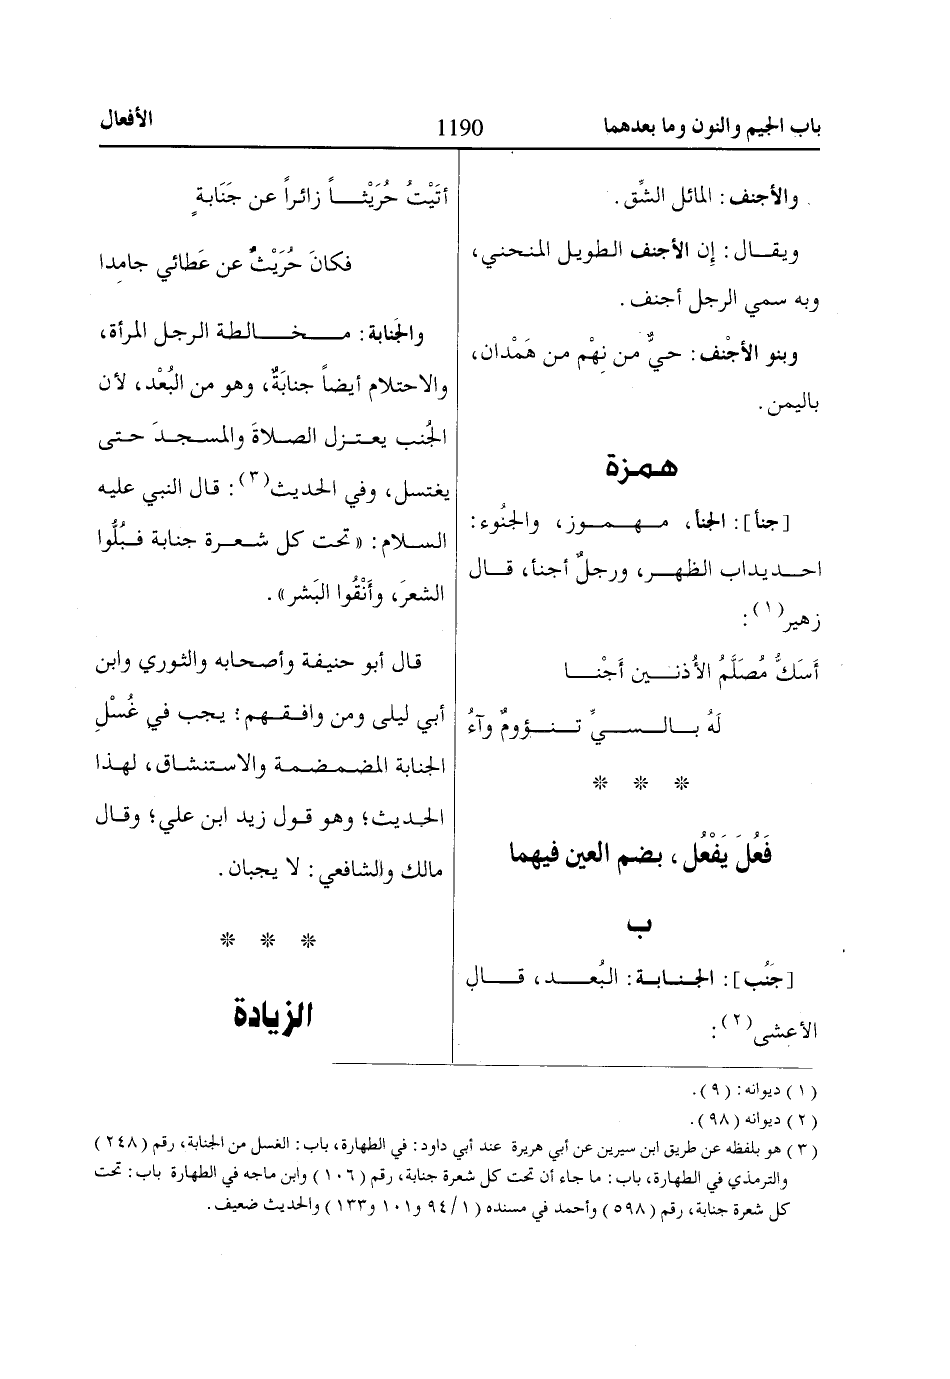 باب الجيم والنون وما بعدهما 1190 الأفعال
والأجنف: المائل الشَّق.
ويقال: إن الأجنف الطويل المنحني،
وبه سمي الرجل أجنف.
وبنو الأجْنف: حيٌّ من نِهْم من هَمْدان،
باليمن.
همزة
[جنأ]: الجنأ، مهموز، والجنُوء:
احديداب الظهر، ورجلٌ أجنأ، قال
زهير(١):
أسَكُّ مُصَلَّمُ الأُذنين أجْنا
لَهُ بالسيِّ تنوُومٌ وآءُ
* * *
فَعُلَ يَفْعُل، بضم العين فيهما
ب
[جَنُب]: الجنابة: البُعد، قال
الأعشى(٢):
أتَيْتُ حُرَيْثاً زائراً عن جَنَابةٍ
فكانَ حُرَيْثٌ عن عَطائي جامدا
والجَنابة: مخالطة الرجل المرأة،
والاحتلام أيضاً جنابَةٌ، وهو من البُعْد، لأن
الجُنب يعتزل الصلاةَ والمسجدَ حتى
يغتسل، وفي الحديث(٣): قال النبي عليه
السلام: «تحت كل شعرة جنابة فبُلُّوا
الشعرَ، وأَنْقُوا البَشر».
قال أبو حنيفة وأصحابه والثوري وابن
أبي ليلى ومن وافقهم: يجب في غُسْلِ
الجنابة المضمضة والاستنشاق، لهذا
الحديث؛ وهو قول زيد ابن علي؛ وقال
مالك والشافعي: لا يجبان.
* * *
الزيادة
(١) ديوانه: (٩).
(٢) ديوانه (٩٨).
(٣) هو بلفظه عن طريق ابن سيرين عن أبي هريرة عند أبي داود: في الطهارة، باب: الغسل من الجنابة، رقم (٢٤٨)
والترمذي في الطهارة، باب: ما جاء أن تحت كل شعرة جنابة، رقم (١٠٦) وابن ماجه في الطهارة باب: تحت
كل شعرة جنابة، رقم (٥٩٨) وأحمد في مسنده (١/ ٩٤ و١٠١ و١٣٣) والحديث ضعيف.